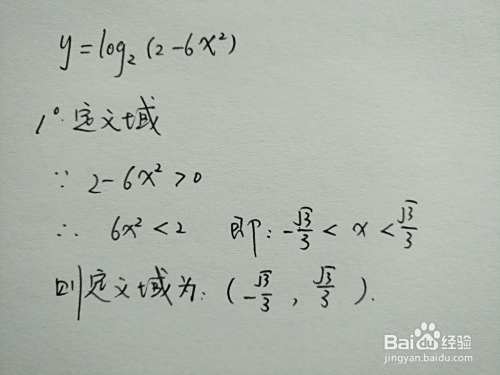 y=log₂(2-6x²)
1°.定义域
∵ 2-6x²>0
∴ 6x²<2 即:-√3/3<x<√3/3
则定义域为:(-√3/3,√3/3).
Baidu经验
jingyan.baidu.com